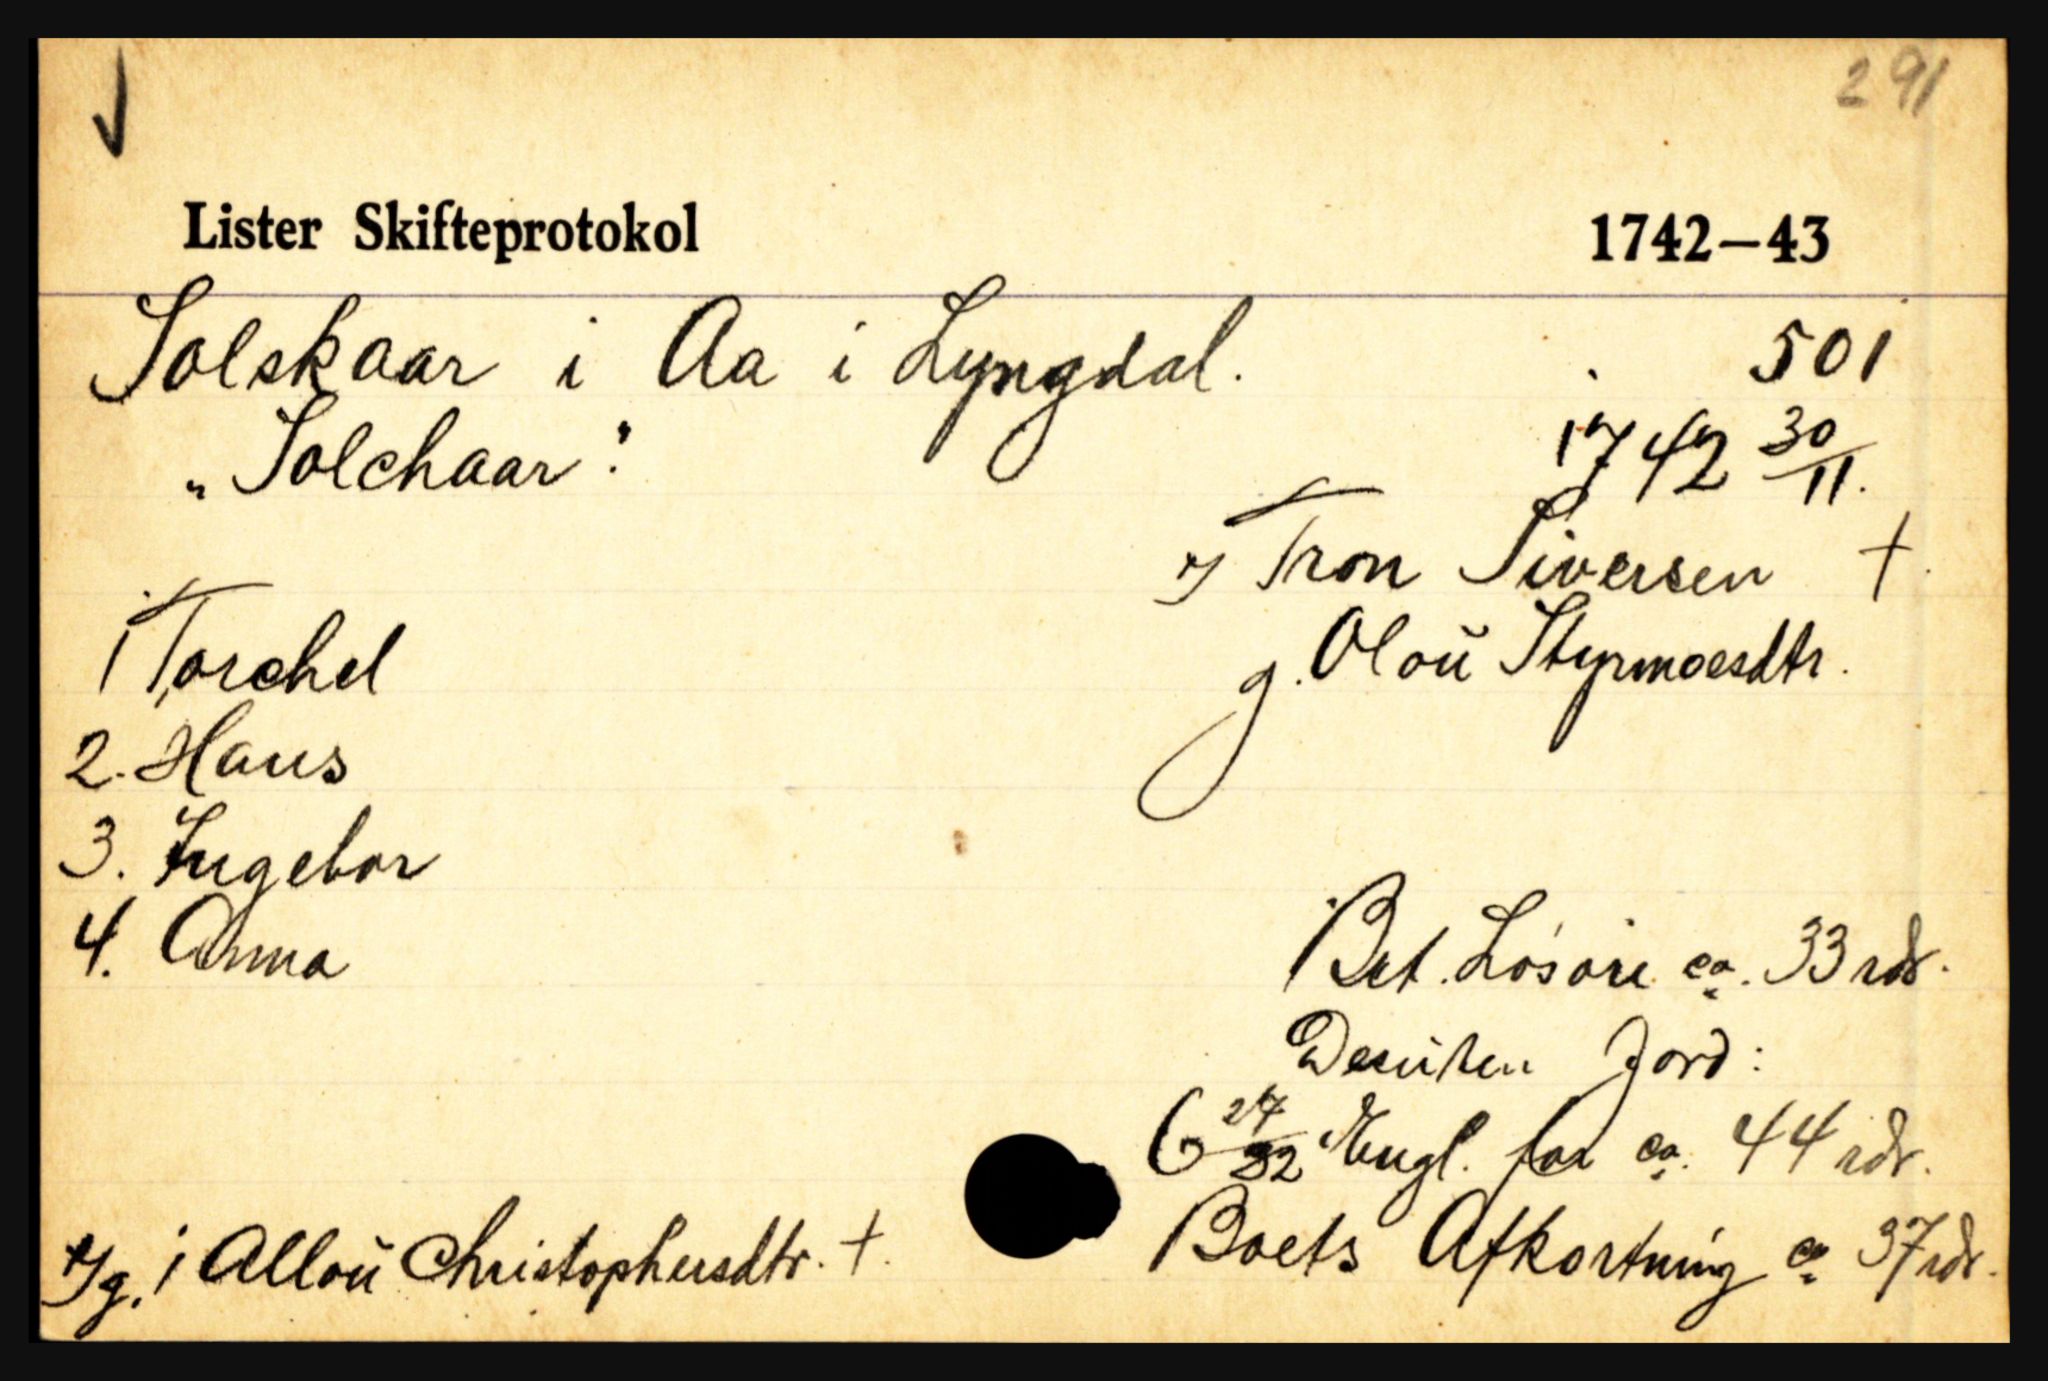 291
Lister Skifteprotokol 1742–43
Solskaar i Aa i Lyngdal. 501
„Solchaar". 1742 30/11.
x) Tron Siversen †.
g. Oloŭ Styrmoesdtr.
1 Torchel
2. Hans
3. Ingebor
4. Anna
Bet. Løsøre ca. 33 rdr.
Desuten Jord:
6 27/32 Engl. for ca. 44 rdr.
Boets Afkortning ca 37 rdr.
x) g. 1 Alloŭ Christophersdtr. †.